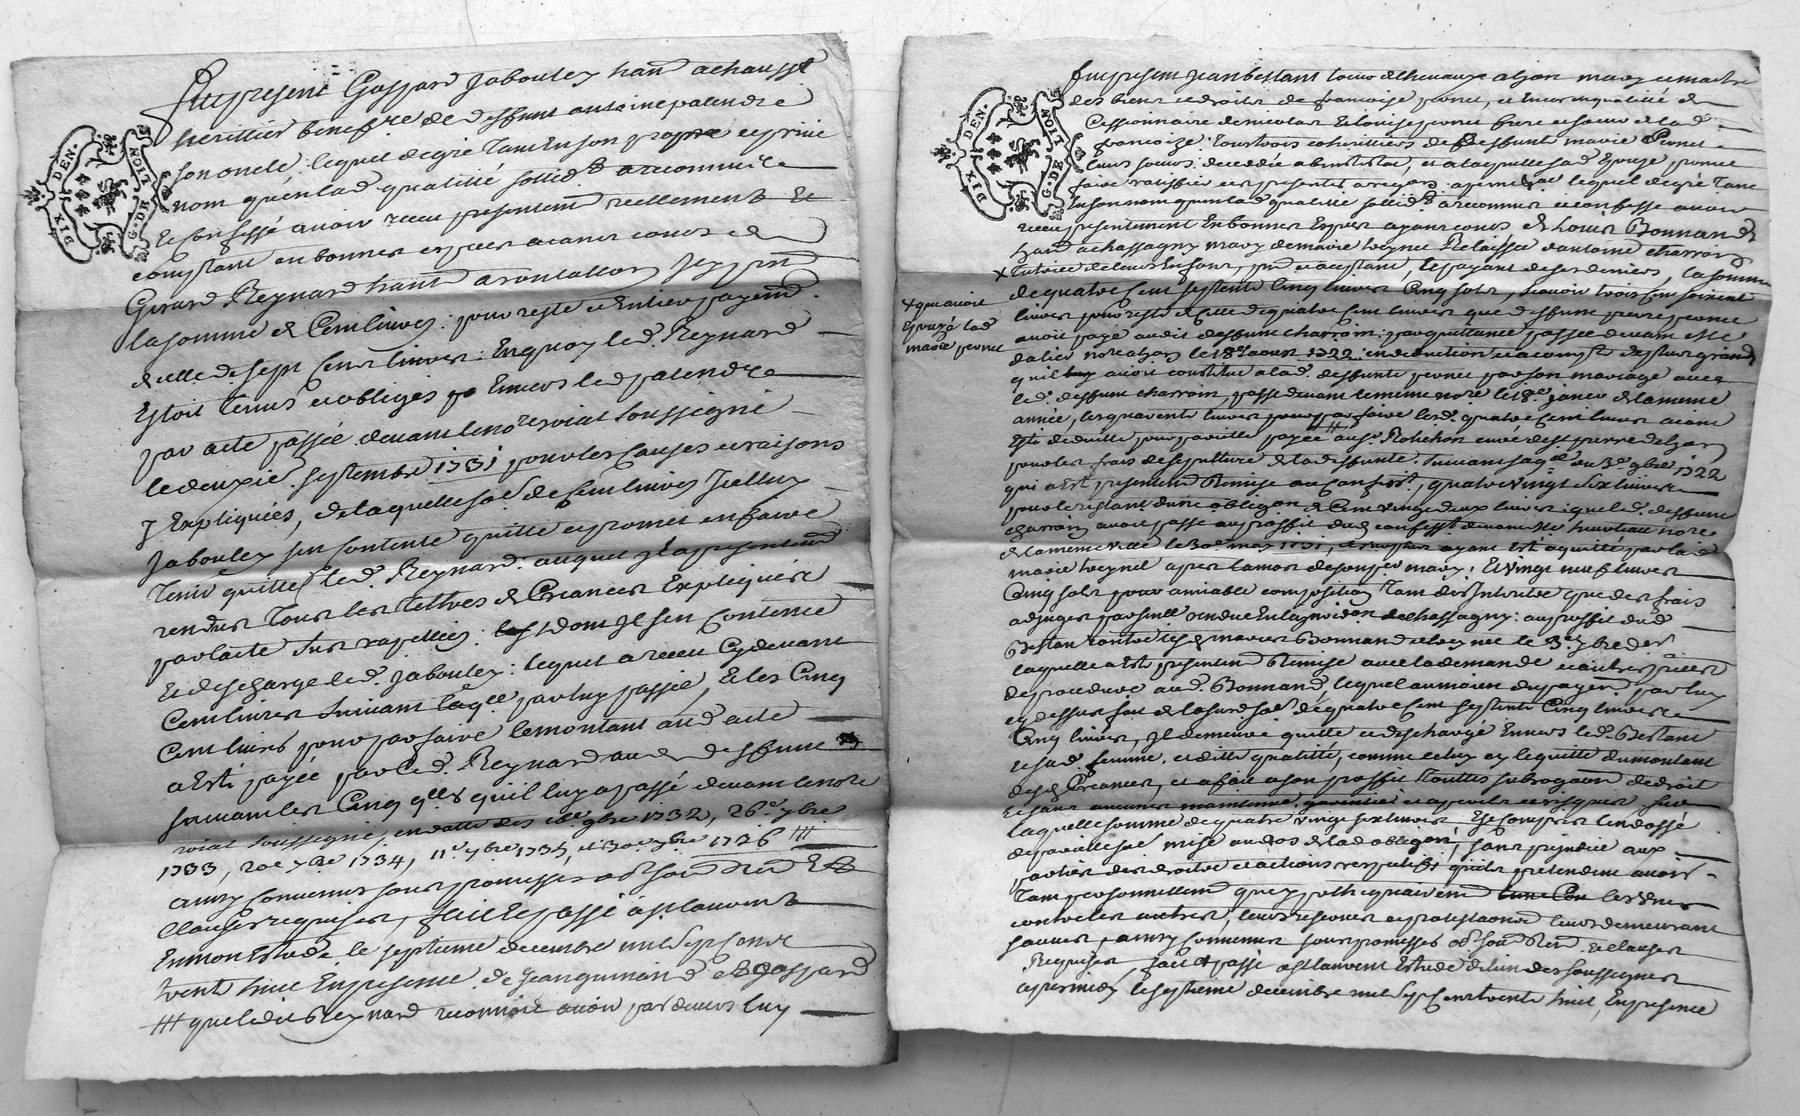 DIX DEN.
G. DE LION
fut present Gaspard Jabouley hant a chaussé
herittier benef.re de deffunt antoine palendre
son oncle. lequel de gré tant en son propre et privé
nom qu'en lad. qualitté sollid. a reconnu
et confessé avoir receu presentem.t reellement et
comptant en bonnes especes ayant cours de
Girard Reynard hant a rontallon icy p.nt
la somme de Cent livres. pour reste et Entier payem.t
de celle de sept Cents livres. En quoy led. Reynard
Estoit tenus et obligés Envers led. palendre
par acte passé devant le no.re roial soussigné
le deuxie. septembre 1731 pour les Causes et raisons
y Expliquées, de laquelle so.e de Cent livres Icelluy
Jabouley s'en contente quitte et promet en faire
tenir quitte led. Reynard. auquel Il a presentem.t
rendus tous les tittres de Creances Expliquées
par l'acte sus rapellés. dont Il s'en contente
Et descharge led. Jabouley: lequel a receu Cy devant
Cent livres suivant la q.ce par luy passée, Et les Cinq
Cent livres pour parfaire le montant aud. acte
a Esté payée par led. Reynard aud. deffunt
suivant les Cinq q.ces qu'il luy a passé devant le no.re
roial soussigné, en datte des 9bre 1732, 26e 7bre
1733, 20e 7bre 1734, 11e 7bre 1735, et 30e 7bre 1736 ///
ainsy convenus sous promesses
Clauses requises, fait Et passé a St laurent
En mon Estude le septieme decembre mil sept cent
trente huit En presence de Jean guinand et Gaspard
/// que ledit Reynard reconnoit avoir par devers luy
DIX DEN.
G. DE LION
fut present Jean bestant loueur de chevaux a lyon mary et maitre
des biens et droits de francoise pernet, et Encor en qualitté de
Cessionnaire de nicolas Et louise pernet frere et soeur de lad.
francoise. tous trois coherittiers de deffunte marie Pernet
leurs soeurs. decedée abintestat, et a laquelle sad. Epouse promet
faire ratiffier ces presentes lequel de gré tant
En son nom qu'en lad. qualitté sollid. a reconnu et confessé avoir
receu presentement En bonnes Especes ayant cours de Louis Bonnand
hant a chassagny mary de marie veynet Relaissée d'antoine charroin
x tutrice de leurs Enfans, p.nt et acceptant, Et payant de ses deniers, la somme
de quatre Cent septente Cinq livres Cinq sols, scavoir trois cent soixante
x qui avoit
Epouzé lad.
marie pernet
livres pour reste de Celle de quatre Cent livres que deffunt pierre pernet
avoit payé audit deffunt charroin: par quittance passée devant me
dalier no.re a lyon le 18e aoust 1722. en deduction et a compte de plus grande
qu'il avoit constitué a lad. deffunte pernet par son mariage avec
led. deffunt charroin, passé devant le meme no.re le 18e janv. de la meme
année, les quarente livres pour parfaire lesd. quatre Cent livres aiant
Esté deduitte pour pareille payée au Sr Rolichon curé de St pierre de lyon
pour les frais de sepulture de lad. deffunte. suivant sa q.ce du 3e 9bre 1722
qui a Esté presentem.t Remise au Confess.t, quatre vingt six livres
pour le restant d'une obligaon de Cent vingt deux livres: que led. deffunt
charroin avoit passé au proffit dud. confess.t devant Me nouveau no.re
de la meme ville le 30e may 1731, et surplus ayant Esté aquitté par lad.
marie veynet apres la mort de son p.er mary, Et vingt neuf livres
Cinq sols pour amiable composition tant des Interets que des frais
adjuges par sent.ce rendue En la jurid.on de chassagny: au proffit dud.
Bestan contre lesd. mariés Bonnand et veynet le 3e 7bre der
laquelle a Esté presentem.t Remise avec la demande et autres pieces
de procedure aud. Bonnand, lequel au moien du payem.t par luy
cy dessus fait de la susd. so.e de quatre Cent septente Cinq livres
Cinq livres, Il demeure quitte et deschargé Envers led. Bestant
et sad. femme. et ditte qualitté, comme celuy cy le quitte du montant
desd. Creances, et a fait a son proffit touttes subrogaon de droit
Et sans aucune maintenue, garentie et a peril et risques
laquelle somme de quatre vingt six livres Est comprise l'endossé
de pareille so.e mise au dos de lad. obligon, sans prejudice aux
parties des droits et actions respectifs qu'elles pretendent avoir
tant personnellem.t que ypothequairem.t les unes
contre les autres, leurs reserves et protestaons leurs demeurant
sauves, ainsy convenus sous promesses et clauses
Requises fait Et passé a St laurent Estude de l'un des soussignés
apres midy le septieme decembre mil sept cent trente huit, En presence